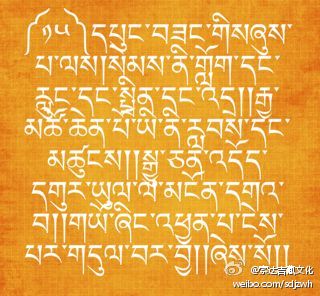 ༡༥ དཔུང་བཟང་གིས་ཞུས་
པ་ལས།སེམས་ནི་གློག་དང་
རླུང་དང་སྤྲིན་དང་འདྲ།།རྒྱ་
མཚོ་ཆེན་པོ་ཡི་ནི་རླབས་དང་
མཚུངས།།སྒྱུ་ཅན་འདོད་
དགུར་ཡུལ་ལ་མངོན་དགའ་
བ།།གཡོ་ཞིང་འཕྱན་པ་ངེས་
པར་གདུལ་བར་བྱ།།ཞེས་སོ།།
@索达吉藏文化
weibo.com/sdjzwh